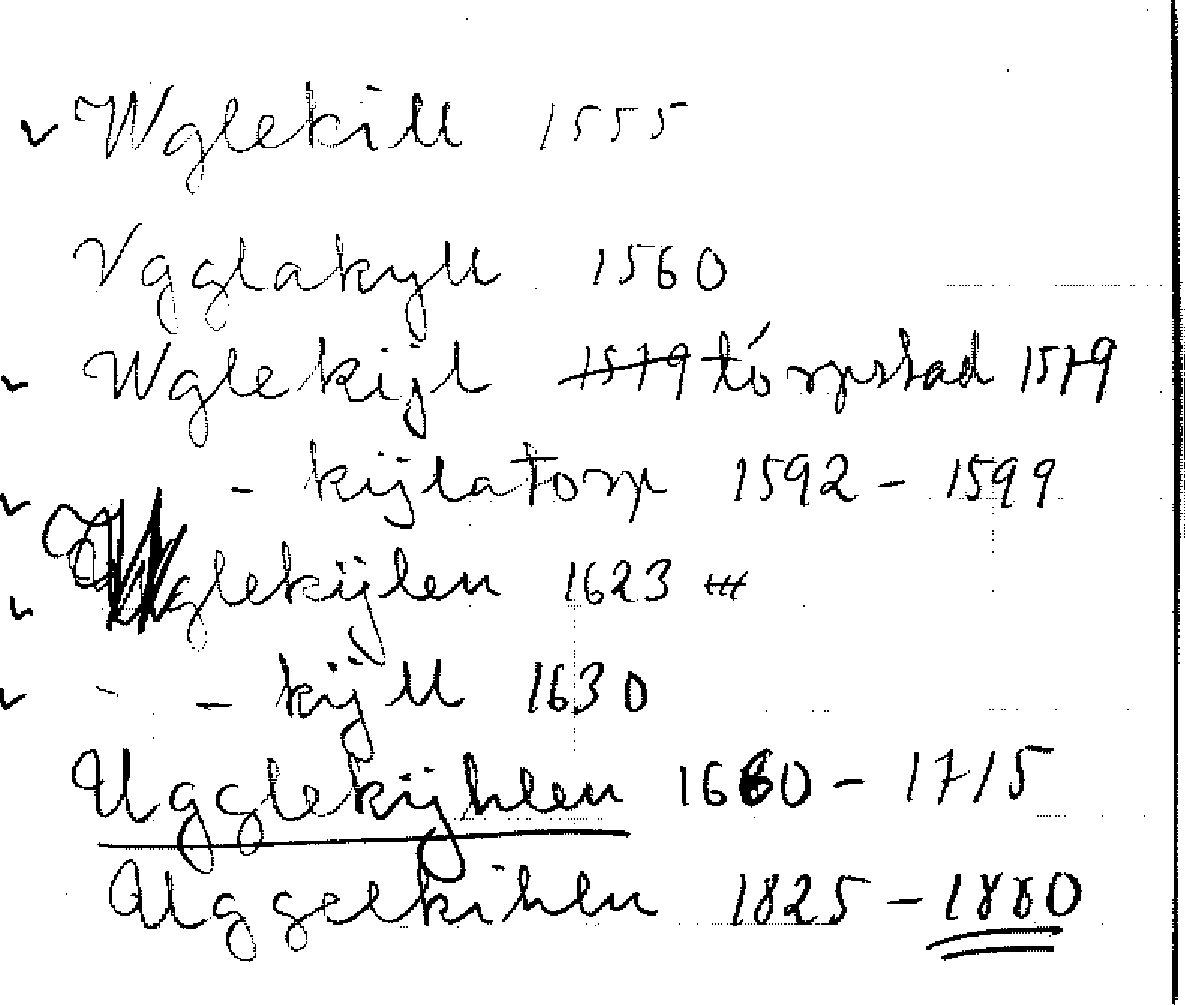 ✓ Wglekill 1555
Vgglakyll 1560
✓ Wglekijl ~~1579~~ törpstad 1579
✓ - kijlatorp 1592 - 1599
✓ Wglekijlen 1623
✓ - - kijll 1630
Ugglekijhlen 1660 - 1715
Uggelkihln 1825 - 1880